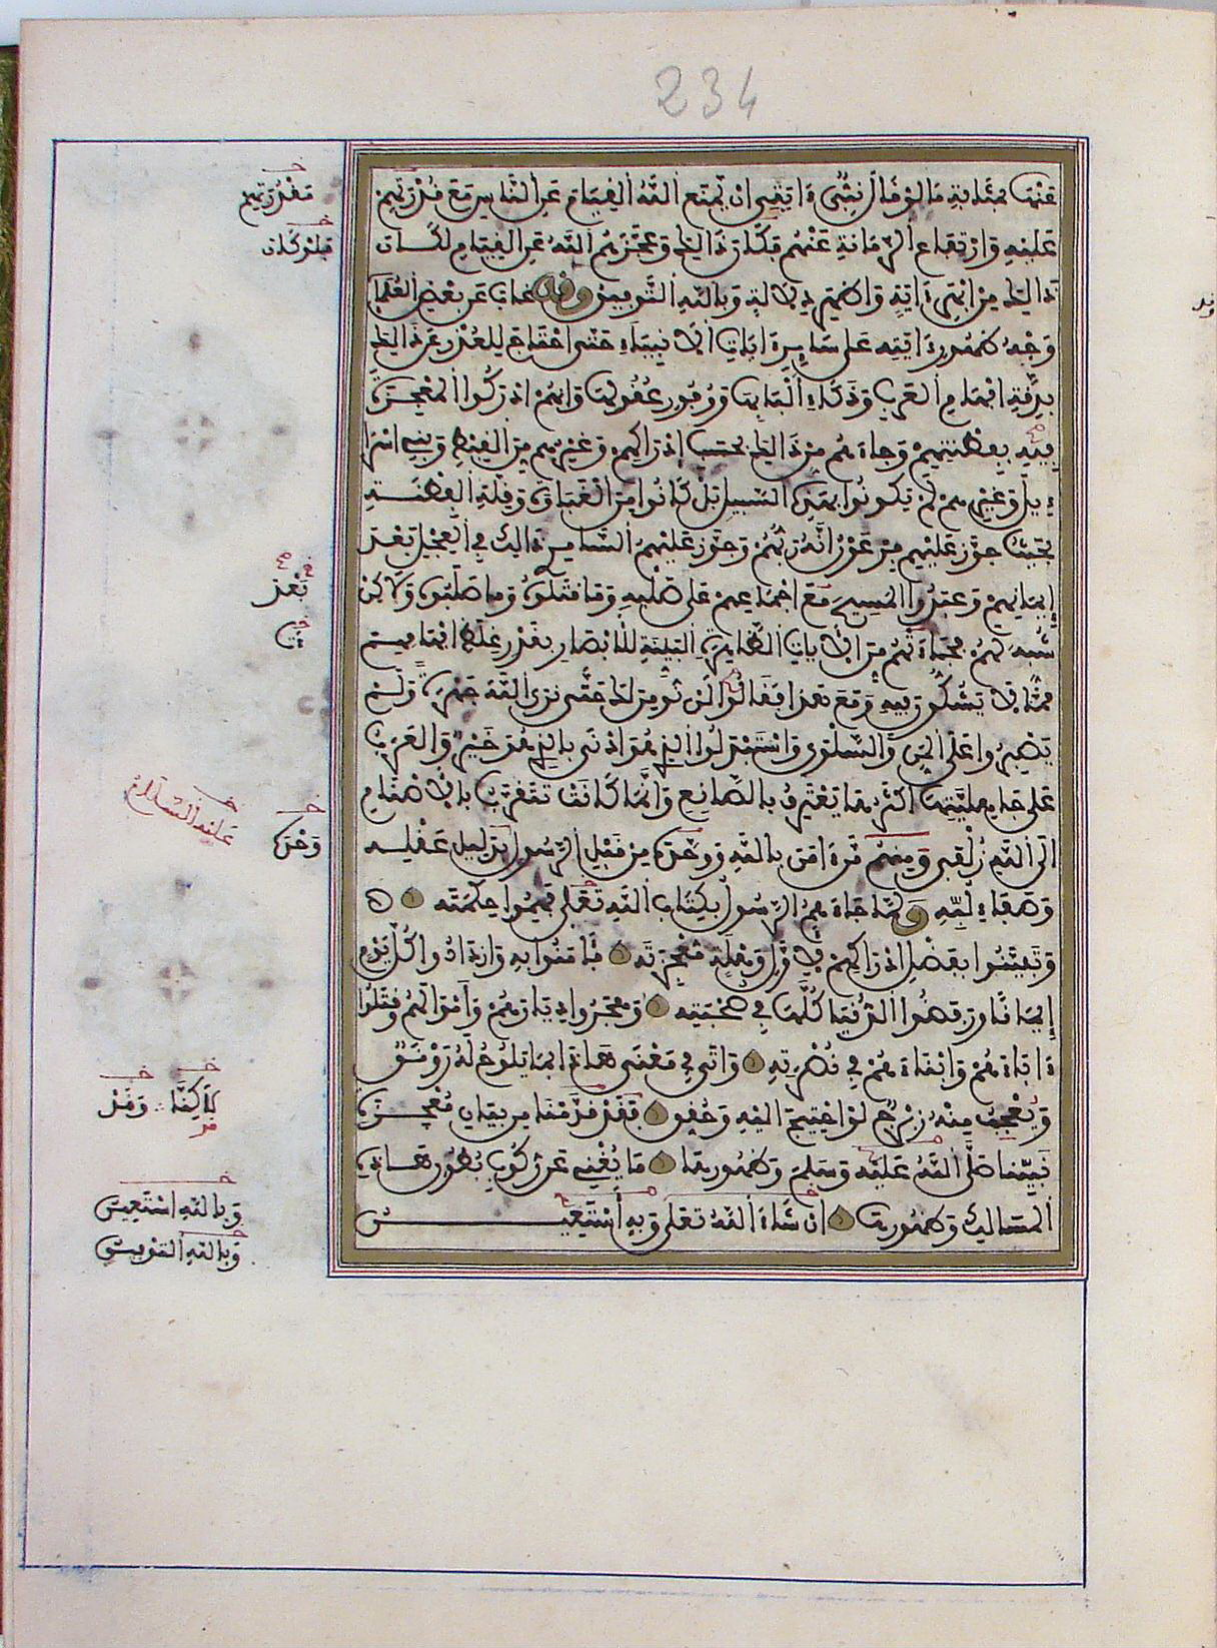 234
عَنْهَا بِمَثَابَةِ مَا لَوْ قَالَ نَبِيٌّ ءَايَتِي أَنْ يَمْنَعَ اللَّهُ الْقِيَامَ عَنِ النَّاسِ مَعَ قُدْرَتِهِمْ
عَلَيْهِ وَارْتِفَاعِ الزَّمَانَةِ عَنْهُمْ فَكَانَ ذَالِكَ وَعَجَّزَهُمُ اللَّهُ عَنِ الْقِيَامِ لَكَانَ
ذَالِكَ مِنْ أَبْهَى ءَايَةٍ وَأَظْهَرِ دَلَالَةٍ وَبِاللَّهِ التَّوْفِيقُ وَقَدْ غَابَ عَنْ بَعْضِ الْعُلَمَاءِ
وَجْهُ ظُهُورِ ءَايَتِهِ عَلَى سَائِرِ ءَايَاتِ الْأَنْبِيَاءِ حَتَّى احْتَاجَ لِلْعُذْرِ عَنْ ذَالِكَ
بِدِقَّةِ أَفْهَامِ الْعَرَبِ وَذَكَاءِ أَلْبَابِهَا وَوُفُورِ عُقُولِهَا وَأَنَّهُمْ أَدْرَكُوا الْمُعْجِزَةَ
فِيهِ بِفِطْنَتِهِمْ وَجَاءَهُمْ مِنْ ذَالِكَ بِحَسَبِ إِدْرَاكِهِمْ وَغَيْرُهُمْ مِنَ الْقِبْطِ وَبَنِي إِسْرَا
ءِيلَ وَغَيْرِهِمْ لَمْ يَكُونُوا بِهَذِهِ السَّبِيلِ بَلْ كَانُوا مِنَ الْغَبَاوَةِ وَقِلَّةِ الْفِطْنَةِ
بِحَيْثُ جَوَّزَ عَلَيْهِمْ فِرْعَوْنُ أَنَّهُ رَبُّهُمْ وَجَوَّزَ عَلَيْهِمُ السَّامِرِيُّ ذَالِكَ فِي الْعِجْلِ بَعْدَ
إِيمَانِهِمْ وَعَبَدُوا الْمَسِيحَ مَعَ إِجْمَاعِهِمْ عَلَى صَلْبِهِ وَمَا قَتَلُوهُ وَمَا صَلَبُوهُ وَلَاكِنْ
شُبِّهَ لَهُمْ فَجَاءَتْهُمْ مِنَ الْآيَاتِ الظَّاهِرَةِ الْبَيِّنَةِ لِلْأَبْصَارِ بِقَدْرِ غِلَظِ أَفْهَامِهِمْ
مَّا لَا يَشُكُّونَ فِيهِ وَمَعَ هَذَا فَقَالُوا لَنْ نُؤْمِنَ لَكَ حَتَّى نَرَى اللَّهَ جَهْرَةً وَلَمْ
يَصْبِرُوا عَلَى الْمَنِّ وَالسَّلْوَى وَاسْتَبْدَلُوا الَّذِي هُوَ أَدْنَى بِالَّذِي هُوَ خَيْرٌ وَالْعَرَبُ
عَلَى جَاهِلِيَّتِهَا أَكْثَرُهَا يَعْتَرِفُ بِالصَّانِعِ وَإِنَّمَا كَانَتْ تَتَقَرَّبُ بِالْأَصْنَامِ
إِلَى اللَّهِ زُلْفَى وَمِنْهُمْ مَنْ ءَامَنَ بِاللَّهِ وَوَحَّدَهُ مِنْ قَبْلِ الرَّسُولِ بِدَلِيلِ عَقْلِهِ
وَصَفَاءِ لُبِّهِ وَلَمَّا جَاءَهُمُ الرَّسُولُ بِكِتَابِ اللَّهِ تَعَلَى فَهِمُوا حِكْمَتَهُ
وَتَبَيَّنُوا بِفَضْلِ إِدْرَاكِهِمْ لِأَوَّلِ وَهْلَةٍ مُعْجِزَتَهُ فَآمَنُوا بِهِ وَازْدَادُوا كُلَّ يَوْمٍ
إِيمَانًا وَرَفَضُوا الدُّنْيَا كُلَّهَا فِي صُحْبَتِهِ وَهَجَرُوا دِيَارَهُمْ وَأَمْوَالَهُمْ وَقَتَلُوا
ءَابَاءَهُمْ وَأَبْنَاءَهُمْ فِي نُصْرَتِهِ وَأَتَى فِي مَعْنَى هَاذَا بِمَا يَلُوحُ لَهُ رَوْنَقٌ
وَيُعْجِبُ مِنْهُ زِبْرِجٌ لَوِ احْتِيجَ إِلَيْهِ وَحُقِّقَ فَقَدْ قَدَّمْنَا مِنْ بَيَانِ مُعْجِزَةِ
نَبِيِّنَا صَلَّى اللَّهُ عَلَيْهِ وَسَلَّمَ وَظُهُورِهَا مَا يُغْنِي عَنْ رُكُوبِ بُطُونِ هَاذِهِ
الْمَسَالِكِ وَظُهُورِهَا إِنْ شَاءَ اللَّهُ تَعَلَى وَبِهِ أَسْتَعِينُ
مَقْدُرَتِهِمْ
فَلَوْ كَانَ
بَعْدَ
وَحْدَهُ
عَلَيْهِ السَّلَامُ
وَبِاللَّهِ أَسْتَعِينُ
وَبِاللَّهِ التَّوْفِيقُ